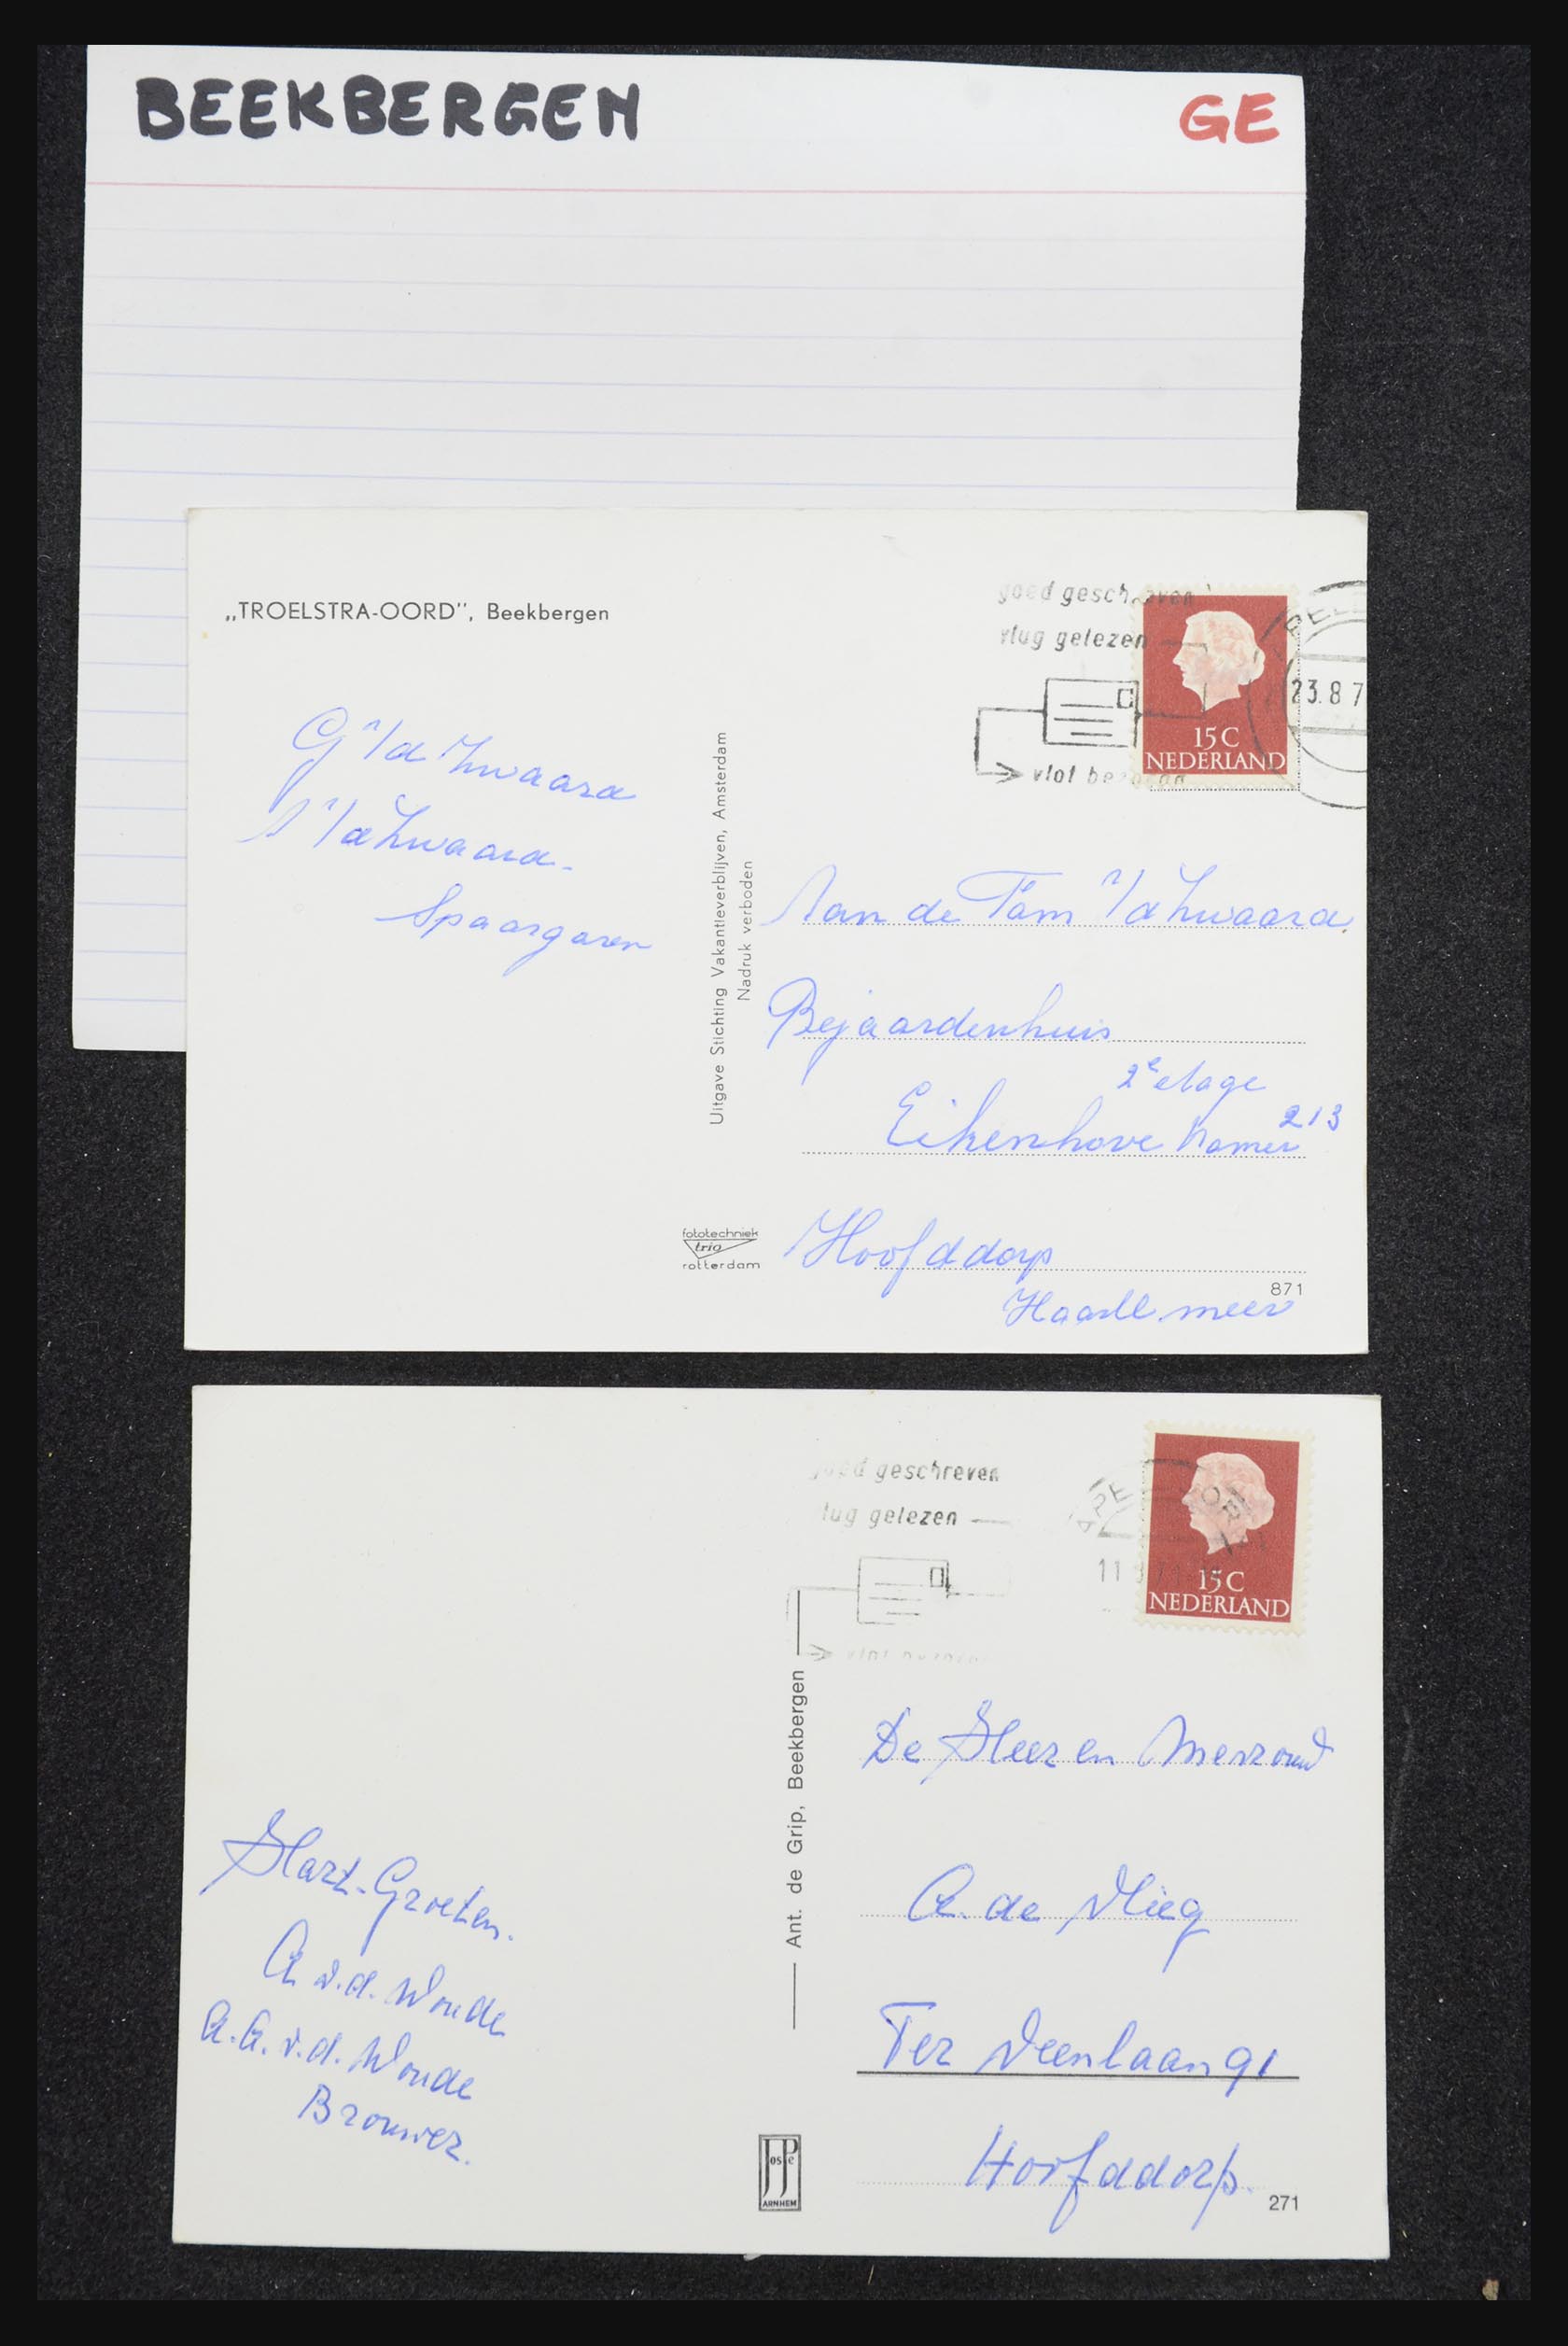 BEEKBERGEN GE
„TROELSTRA-OORD”, Beekbergen
goed geschreven
vlug gelezen
vlot
23.8 7
15C
NEDERLAND
G v/d Zwaard
v/d Zwaard-
Spaargaren
Uitgave Stichting Vakantieverblijven, Amsterdam
Nadruk verboden
Aan de Fam v/d Zwaard
Bejaardenhuis
2e etage
Eikenhove kamer 213
Hoofddorp
Haarll meer
fototechniek
trio
rotterdam
871
goed geschreven
lug gelezen
APE DOR
11
15C
NEDERLAND
Hart-Groeten.
A v.d. Woude
A.A. v.d. Woude
Brouwer.
Ant. de Grip, Beekbergen
De Heer en Mevrouw
A. de Vlieg
Ter Veenlaan 91
Hoofddorp.
JosPe
ARNHEM
271